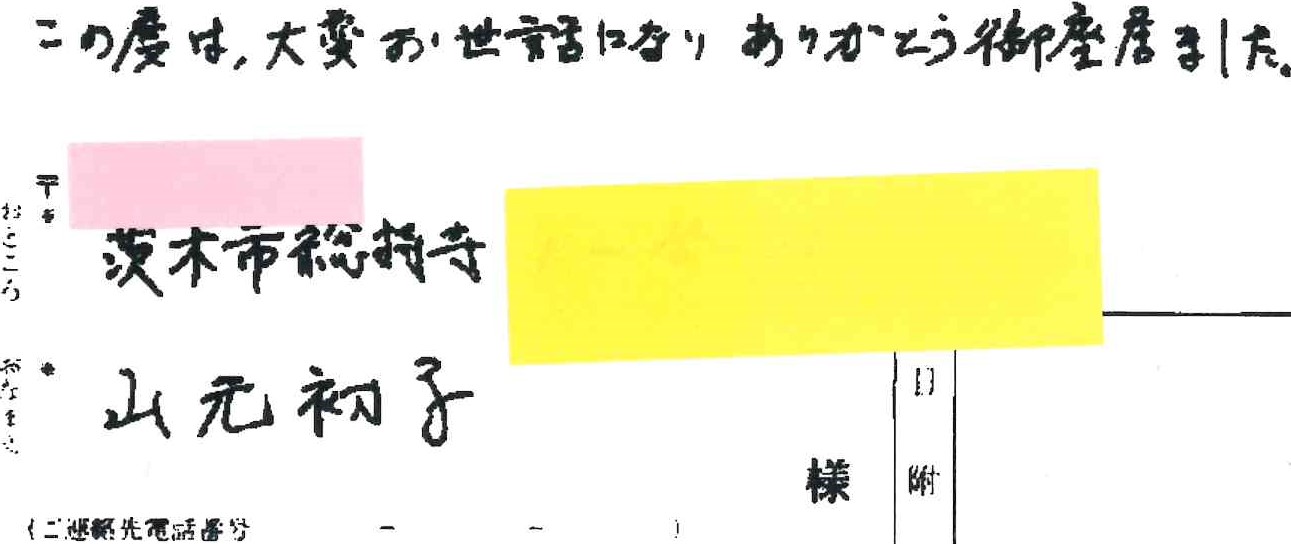 この度は、大変お世話になり ありがとう御座居ました。
〒
おところ
茨木市総持寺
おなまえ
山元初子
様
日附
(ご連絡先電話番号 - - )